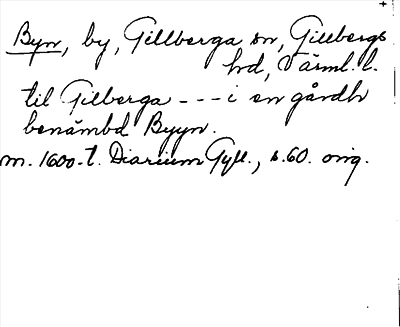 Byn, by, Gillberga sn, Gillbergs
hrd, Värml. l.
til Gilberga --- i en gårdh
benämbd Byyn.
m. 1600-t. Diarium Gyll., s. 60. orig.